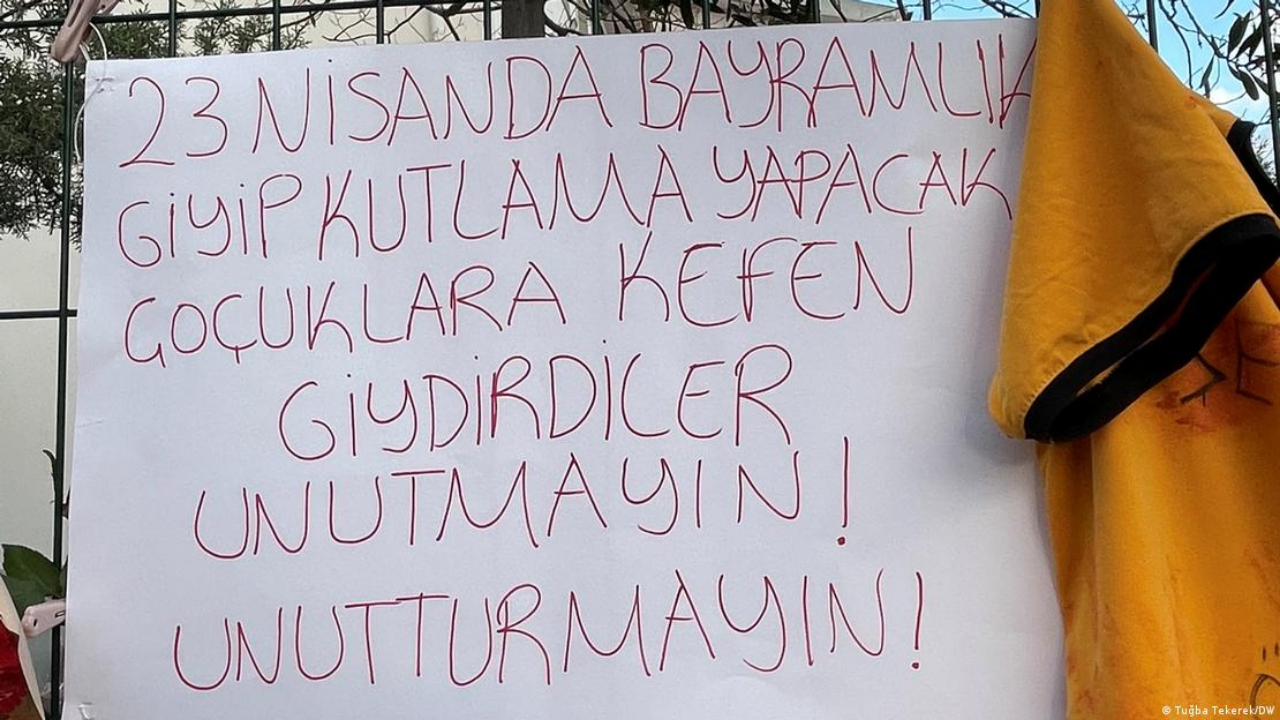 23 NİSANDA BAYRAMLIK
GİYİP KUTLAMA YAPACAK
ÇOÇUKLARA KEFEN
GİYDİRDİLER
UNUTMAYIN!
UNUTTURMAYIN!
© Tuğba Tekerek/DW